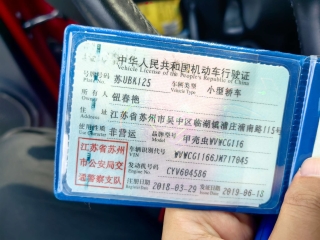 中华人民共和国机动车行驶证
Vehicle License of the People's Republic of China
号牌号码 苏UBK125 车辆类型 Vehicle Type 小型轿车
所有人 钮春艳
住址 江苏省苏州市吴中区临湖镇浦庄浦南路115号
使用性质 非营运 品牌型号 甲壳虫WVWCG116
江苏省苏州
市公安局交
通警察支队
车辆识别代号 VIN WVWCG1166JM717045
发动机号码 Engine No. CYV604586
注册日期 2018-03-29 发证日期 2019-06-18